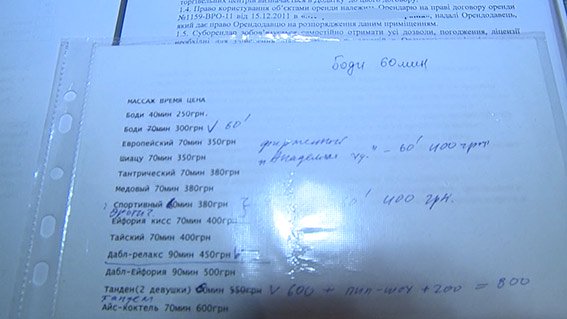 торгівельних центрів визначається в Додатку до цього договору.
1.4. Право користування об'єктами оренди належить Орендарю на праві договору оренди
№1159-ВРО-11 від 15.12.2011 в надалі Орендодавець,
який дає право Орендодавцю на розпорядження даним приміщенням.
1.5. Суборендар зобов'язується самостійно отримати усі дозволи, погодження, ліцензії
Боди 60мин
МАССАЖ ВРЕМЯ ЦЕНА
Боди 40мин 250грн
Боди 70мин 300грн V 60'
Европейский 70мин 350грн фирменный
Шиацу 70мин 350грн - 60' 400 грн
Тантрический 70мин 380грн
Медовый 70мин 380грн
Спортивный 60мин 380грн 400 грн.
Эйфория кисс 70мин 400грн
Тайский 70мин 400грн
Дабл-релакс 90мин 450грн
Дабл-Ейфория 90мин 500грн
Танден(2 девушки) 60мин 550грн V 600 + пип-шоу + 200 = 800
Тандем
Айс-коктель 70мин 600грн